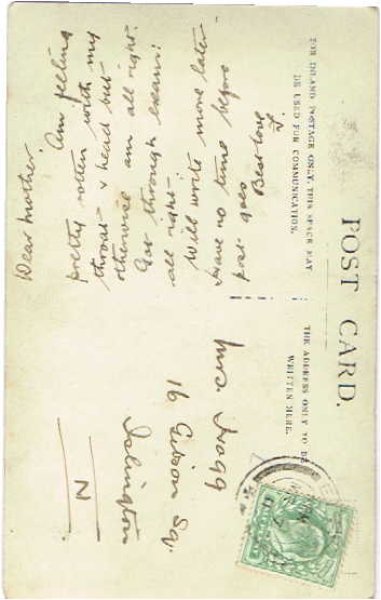 POST CARD.
FOR INLAND POSTAGE ONLY, THIS SPACE MAY
BE USED FOR COMMUNICATION.
THE ADDRESS ONLY TO BE
WRITTEN HERE.
Dear Mother
Am feeling
pretty rotten with my
throat & head but
otherwise am all right.
Got through exam:
all right.
Will write more later
Have no time before
post goes
Best love
Mrs.
16 Gibson Sq.
Islington
N